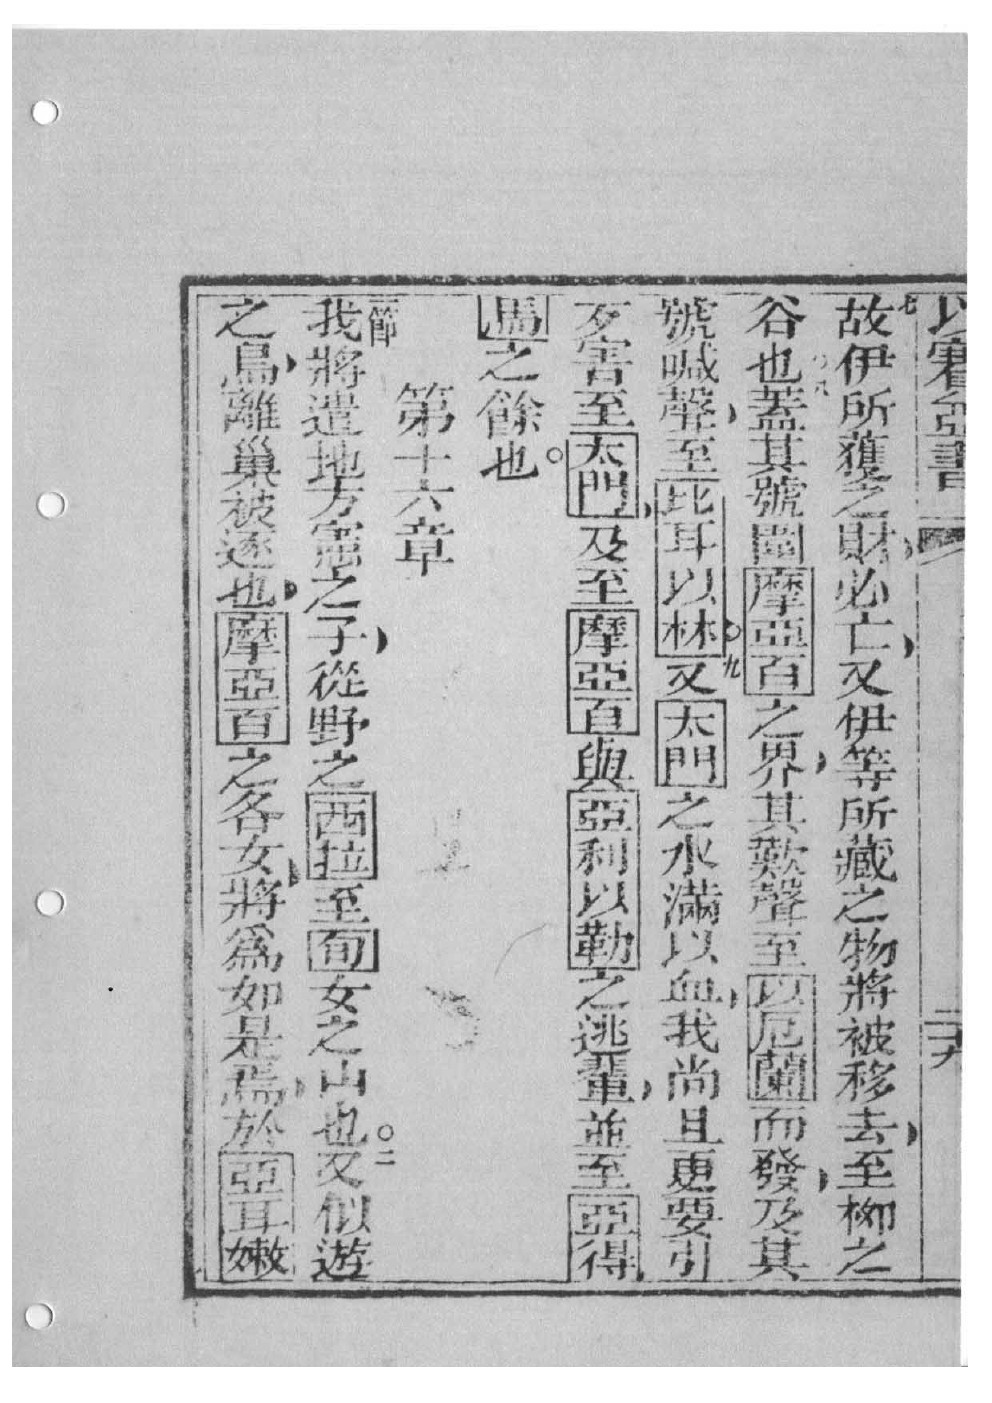 以賽亞書 二十九
七故伊所獲之財必亡又伊等所藏之物將被移去至柳之
谷也○八蓋其號圍摩亞百之界其歎聲至以厄蘭而發及其
號喊聲至比耳以林○九又太門之水滿以血我尚且更要引
歹害至太門及至摩亞百與亞利以勒之逃輩並至亞得
馬之餘也○
第十六章
一節我將遣地方憲之子從野之西拉至旬女之山也○二又似遊
之鳥離巢被逐也摩亞百之各女將為如是焉於亞耳嫩